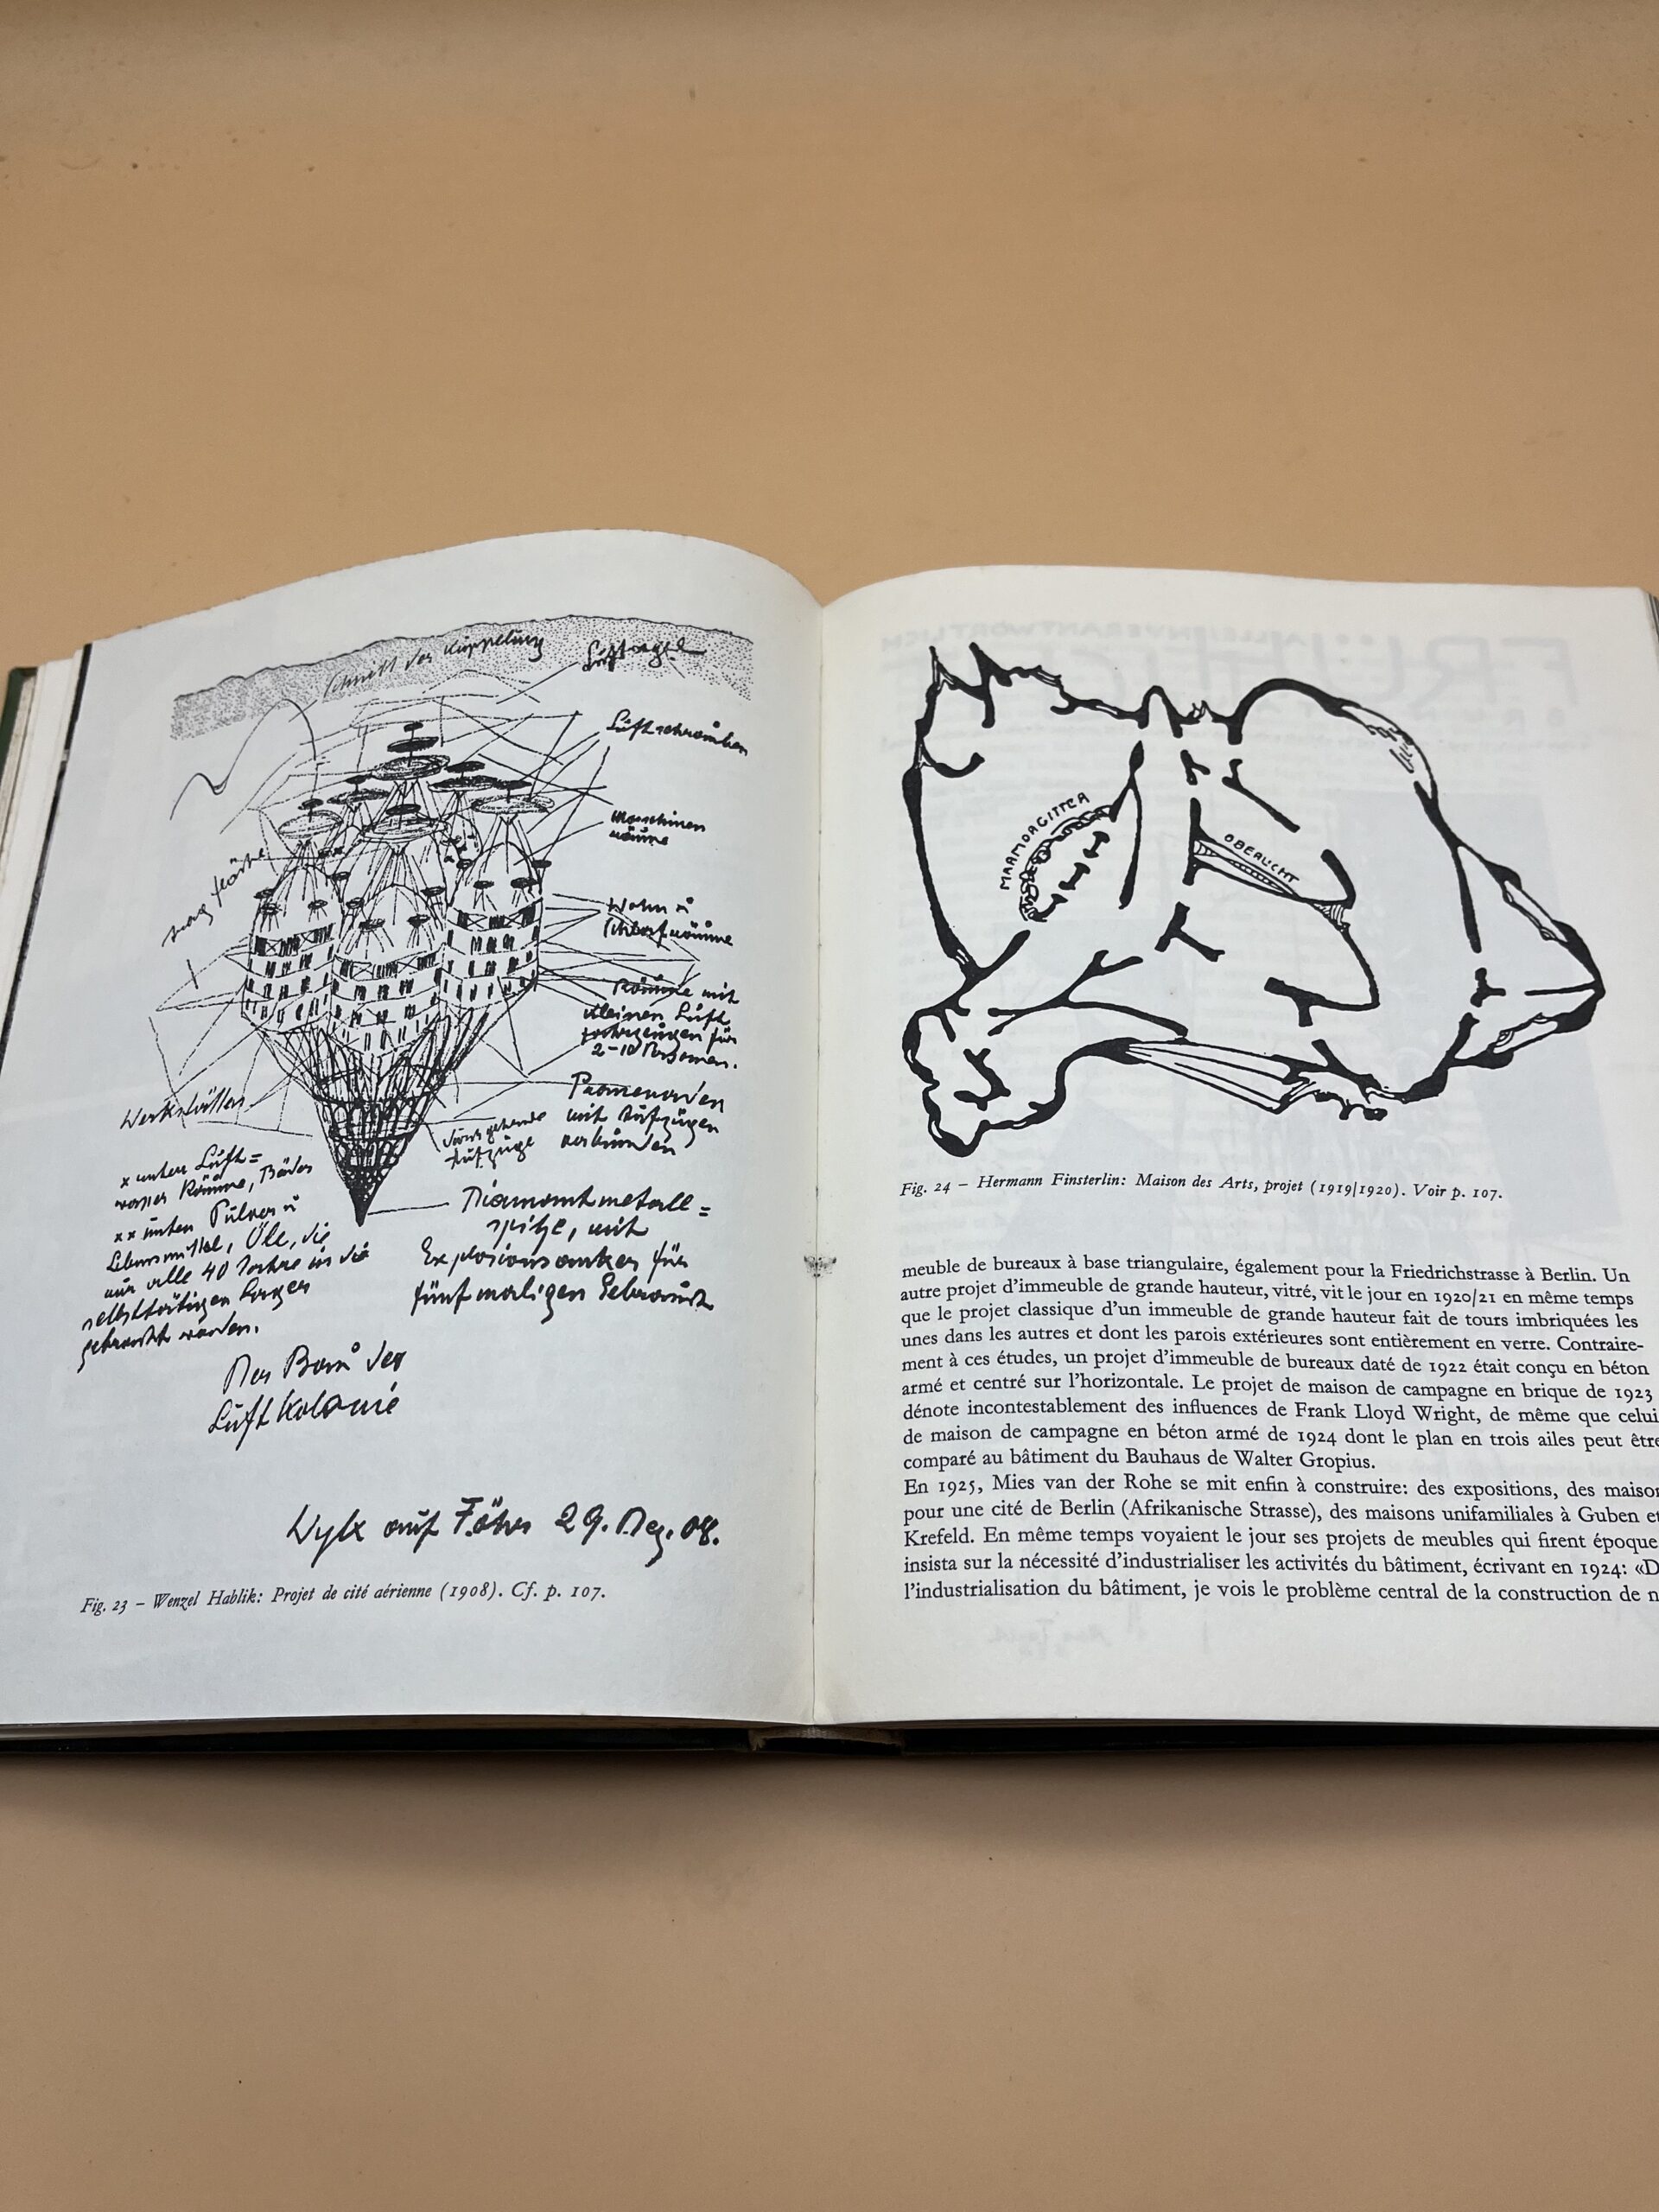 Schnitt der Kuppelung
Luftsegel
Luftschrauben
Maschinen
räume
Wohn u
Schlafräume
Räume mit
kleinen Luft
fahrzeugen für
2-10 Personen.
Promenaden
mit Aufzügen
verbunden
Aufzüge
Werkstätten
x unten Luft=
Räume, Bäder
xx unten Pulver u
Lebensmittel, Öle, die
nur alle 40 Jahre in die
selbsttätigen Lager
gebracht werden.
Diamantmetall=
spitze, mit
Explosionsanker für
fünfmaligen Gebrauch
Der Bau der
Luft Kolonie
Wyk auf Föhr 29. Dez. 08.
Fig. 23 – Wenzel Hablik: Projet de cité aérienne (1908). Cf. p. 107.
MARMORGITTER
OBERLICHT
Fig. 24 – Hermann Finsterlin: Maison des Arts, projet (1919|1920). Voir p. 107.
meuble de bureaux à base triangulaire, également pour la Friedrichstrasse à Berlin. Un
autre projet d'immeuble de grande hauteur, vitré, vit le jour en 1920/21 en même temps
que le projet classique d'un immeuble de grande hauteur fait de tours imbriquées les
unes dans les autres et dont les parois extérieures sont entièrement en verre. Contraire-
ment à ces études, un projet d'immeuble de bureaux daté de 1922 était conçu en béton
armé et centré sur l'horizontale. Le projet de maison de campagne en brique de 1923
dénote incontestablement des influences de Frank Lloyd Wright, de même que celui
de maison de campagne en béton armé de 1924 dont le plan en trois ailes peut être
comparé au bâtiment du Bauhaus de Walter Gropius.
En 1925, Mies van der Rohe se mit enfin à construire: des expositions, des maison
pour une cité de Berlin (Afrikanische Strasse), des maisons unifamiliales à Guben et
Krefeld. En même temps voyaient le jour ses projets de meubles qui firent époque
insista sur la nécessité d'industrialiser les activités du bâtiment, écrivant en 1924: «D
l'industrialisation du bâtiment, je vois le problème central de la construction de n